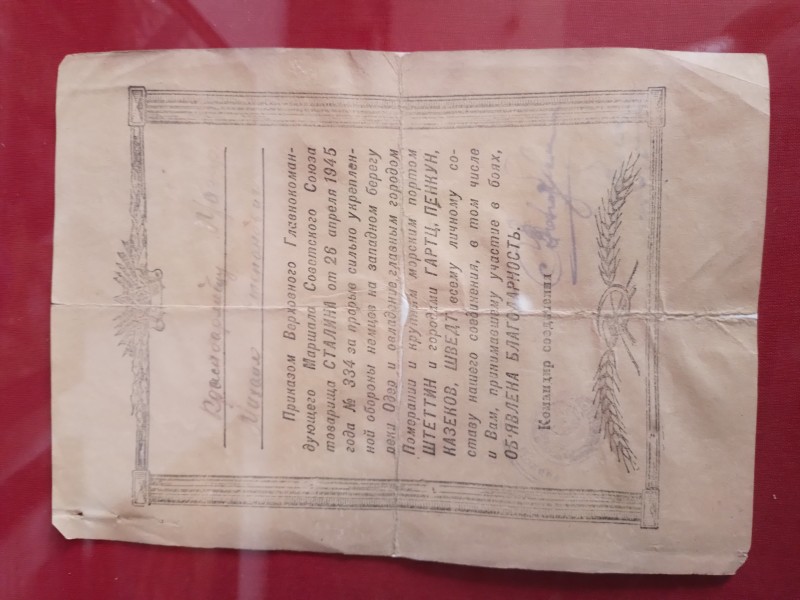 Приказом Верховного Главнокоман-
дующего Маршала Советского Союза
товарища СТАЛИНА от 26 апреля 1945
года № 334 за прорыв сильно укреплен-
ной обороны немцев на западном берегу
реки Одер и овладение главным городом
Померании и крупным морским портом
ШТЕТТИН и городами ГАРТЦ, ПЕНКУН,
КАЗЕКОВ, ШВЕДТ, всему личному со-
ставу нашего соединения, в том числе
и Вам, принимавшему участие в боях,
ОБ'ЯВЛЕНА БЛАГОДАРНОСТЬ.
Командир соединения